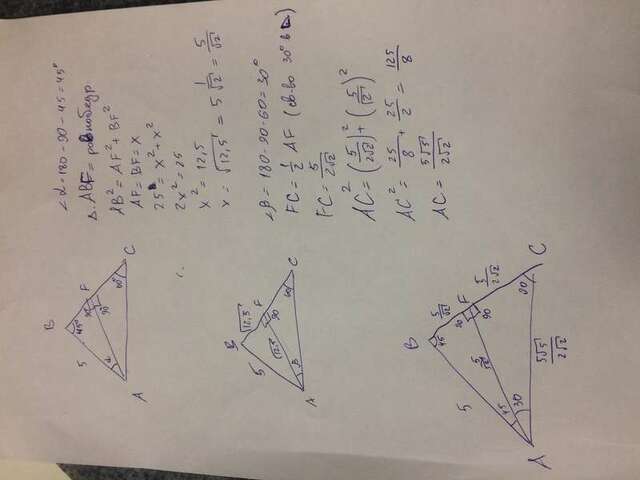 ∠α=180-90-45=45°
Δ ABF = равнобедр
AB² = AF² + BF²
AF = BF = x
25 = x² + x²
2x² = 25
x² = 12,5
x = √12,5 = 5 √(1/2) = 5/√2
∠β = 180-90-60 = 30°
FC = 1/2 AF (св-во 30° в ⊿)
FC = 5/(2√2)
AC² = (5/(2√2))² + (5/√2)²
AC² = 25/8 + 25/2 = 125/8
AC = 5√5/(2√2)
B
45°
5
90
F
90
α
60°
A
C
B
√12,5
5
F
90
√12,5
β
60
A
C
B
45
5/√2
5
90
F
90
5/√2
5/(2√2)
45
30
60
A
C
5√5/(2√2)